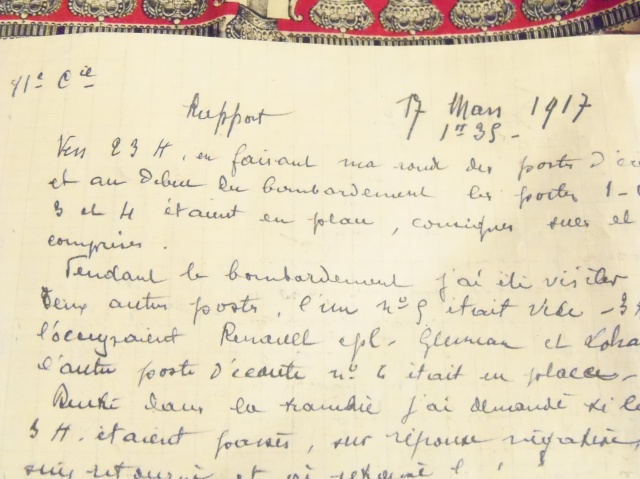 11e Cie
Rapport 17 Mars 1917
1H35 -
Vers 23 H, en faisant ma rond des posts d'éc
et au début du bombardement les postes 1 -
3 et 4 étaient en place, consignes sues et
comprises.
Pendant le bombardement j'ai été visiter
deux autres posts, l'un n° 5 était vide - 3
l'occupaient Renault cpl -
l'autre poste d'écoute n° 6 était en place -
Rentré dans la tranchée j'ai demandé si le
3 H. étaient passés, sur réponse négative,
suis retourné et ai